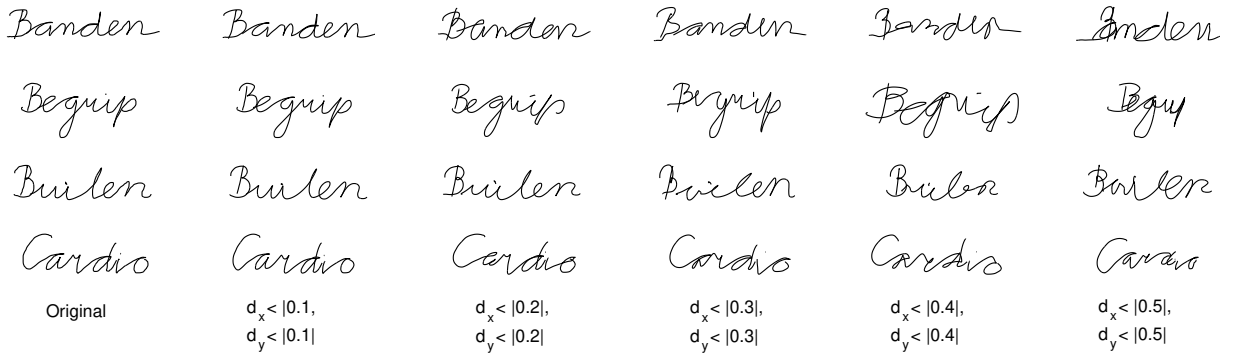 Banden Banden Banden Banden Banden Banden
Begrip Begrip Begrip Begrip Begrip
Builen Builen Builen Builen Builen Builen
Cardio Cardio Cardio Cardio Cardio Cardio
Original d_x < |0.1, d_x < |0.2|, d_x < |0.3|, d_x < |0.4|, d_x < |0.5|,
d_y < |0.1| d_y < |0.2| d_y < |0.3| d_y < |0.4| d_y < |0.5|